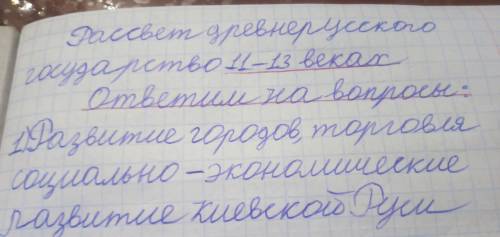 Рассвет древнерусского
государство 11-13 веках
Ответим на вопросы:
1) Развитие городов, торговля
социально-экономические
развитие Киевской Руси